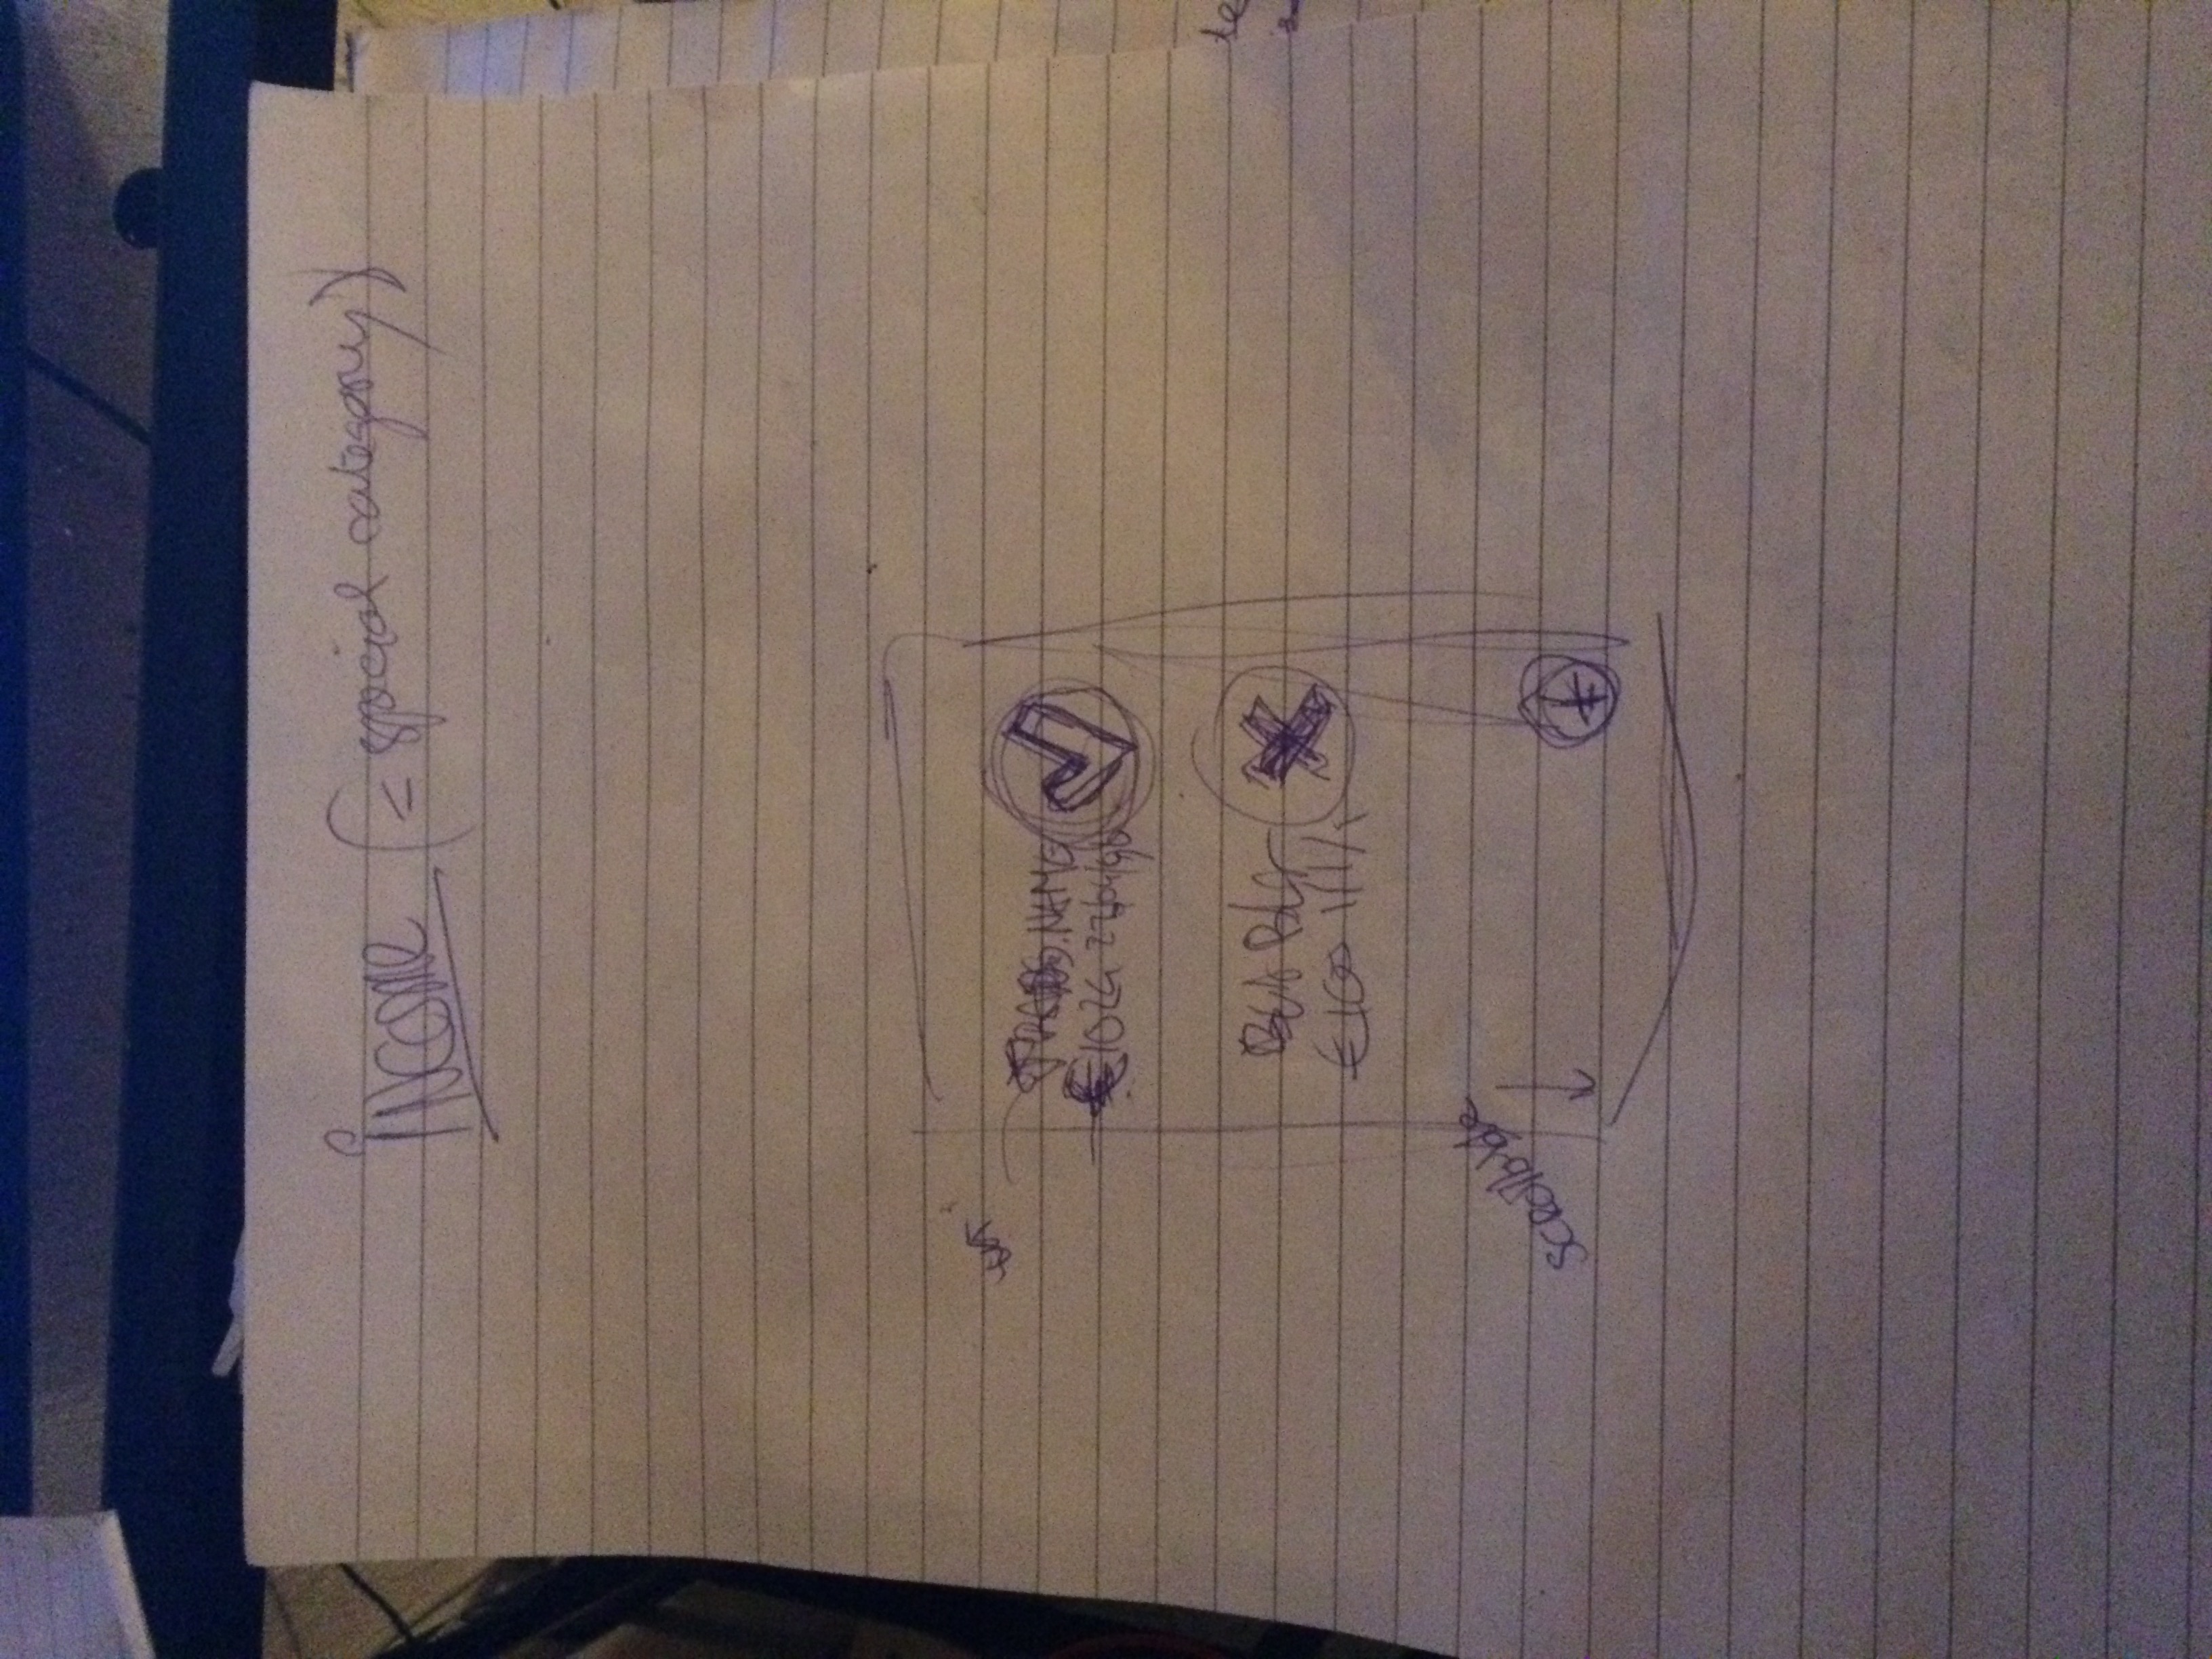 INCOME (= special category)
TRANS. NAME
€1024 22/04/96
Bla Bla
€100 1/1/1
SCROllbable
+